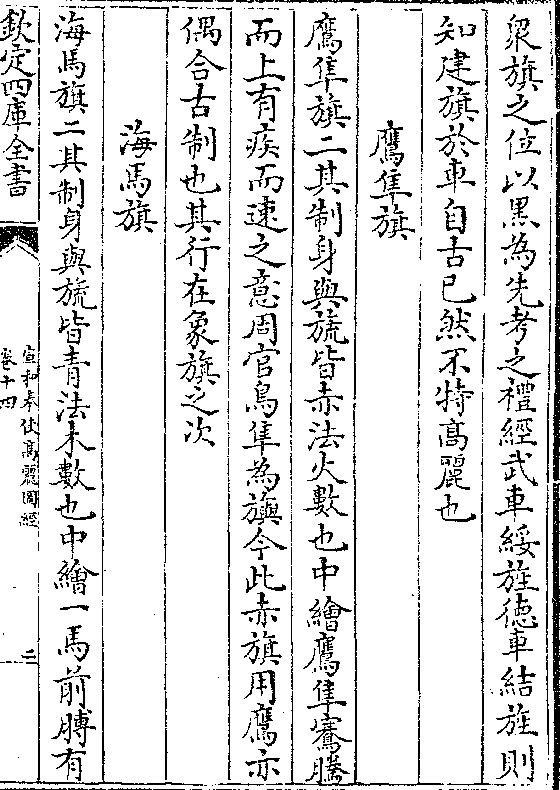 衆旗之位以黒為先考之禮經武車綏旌徳車結旌則
知建旗於車自古已然不特髙麗也
鷹隼旗
鷹隼旗二其制身與旒皆赤法火數也中繪鷹隼騫騰
而上有疾而速之意周官鳥隼為旟今此赤旗用鷹亦
偶合古制也其行在象旗之次
海馬旗
海馬旗二其制身與旒皆青法木數也中繪一馬前膊有
欽定四庫全書
宣和奉使髙麗圖經
卷十四
二